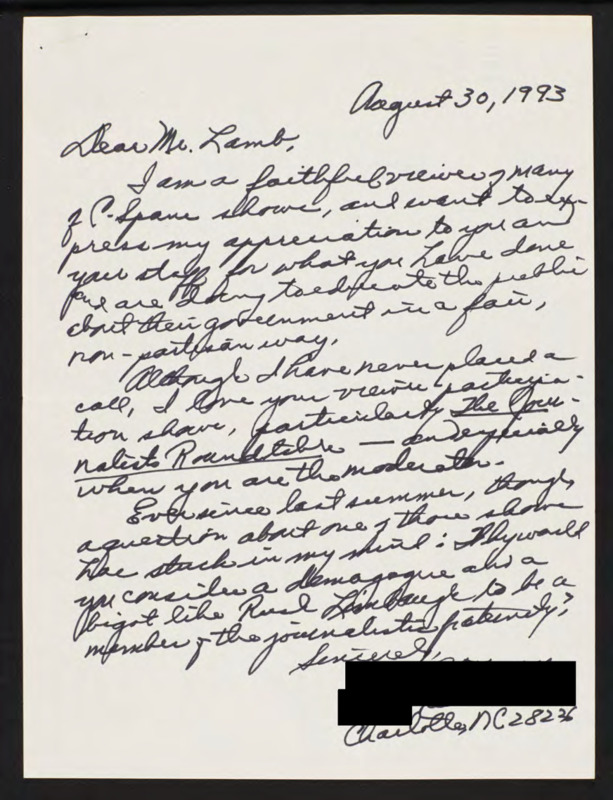 August 30, 1993
Dear Mr. Lamb,
I am a faithful viewer of many
of C-Span shows, and want to ex-
press my appreciation to you and
your staff for what you have done
and are doing to educate the public
about their government in a fair,
non-partisan way.
Although I have never placed a
call, I love your viewer participa-
tion shows, particularly The Jour-
nalists Roundtable — and especially
when you are the moderator.
Ever since last summer, though,
a question about one of those shows
has stuck in my mind: Why would
you consider a demagogue and a
bigot like Rush Limbaugh to be a
member of the journalistic fraternity?
Sincerely,
Charlotte, NC 28226